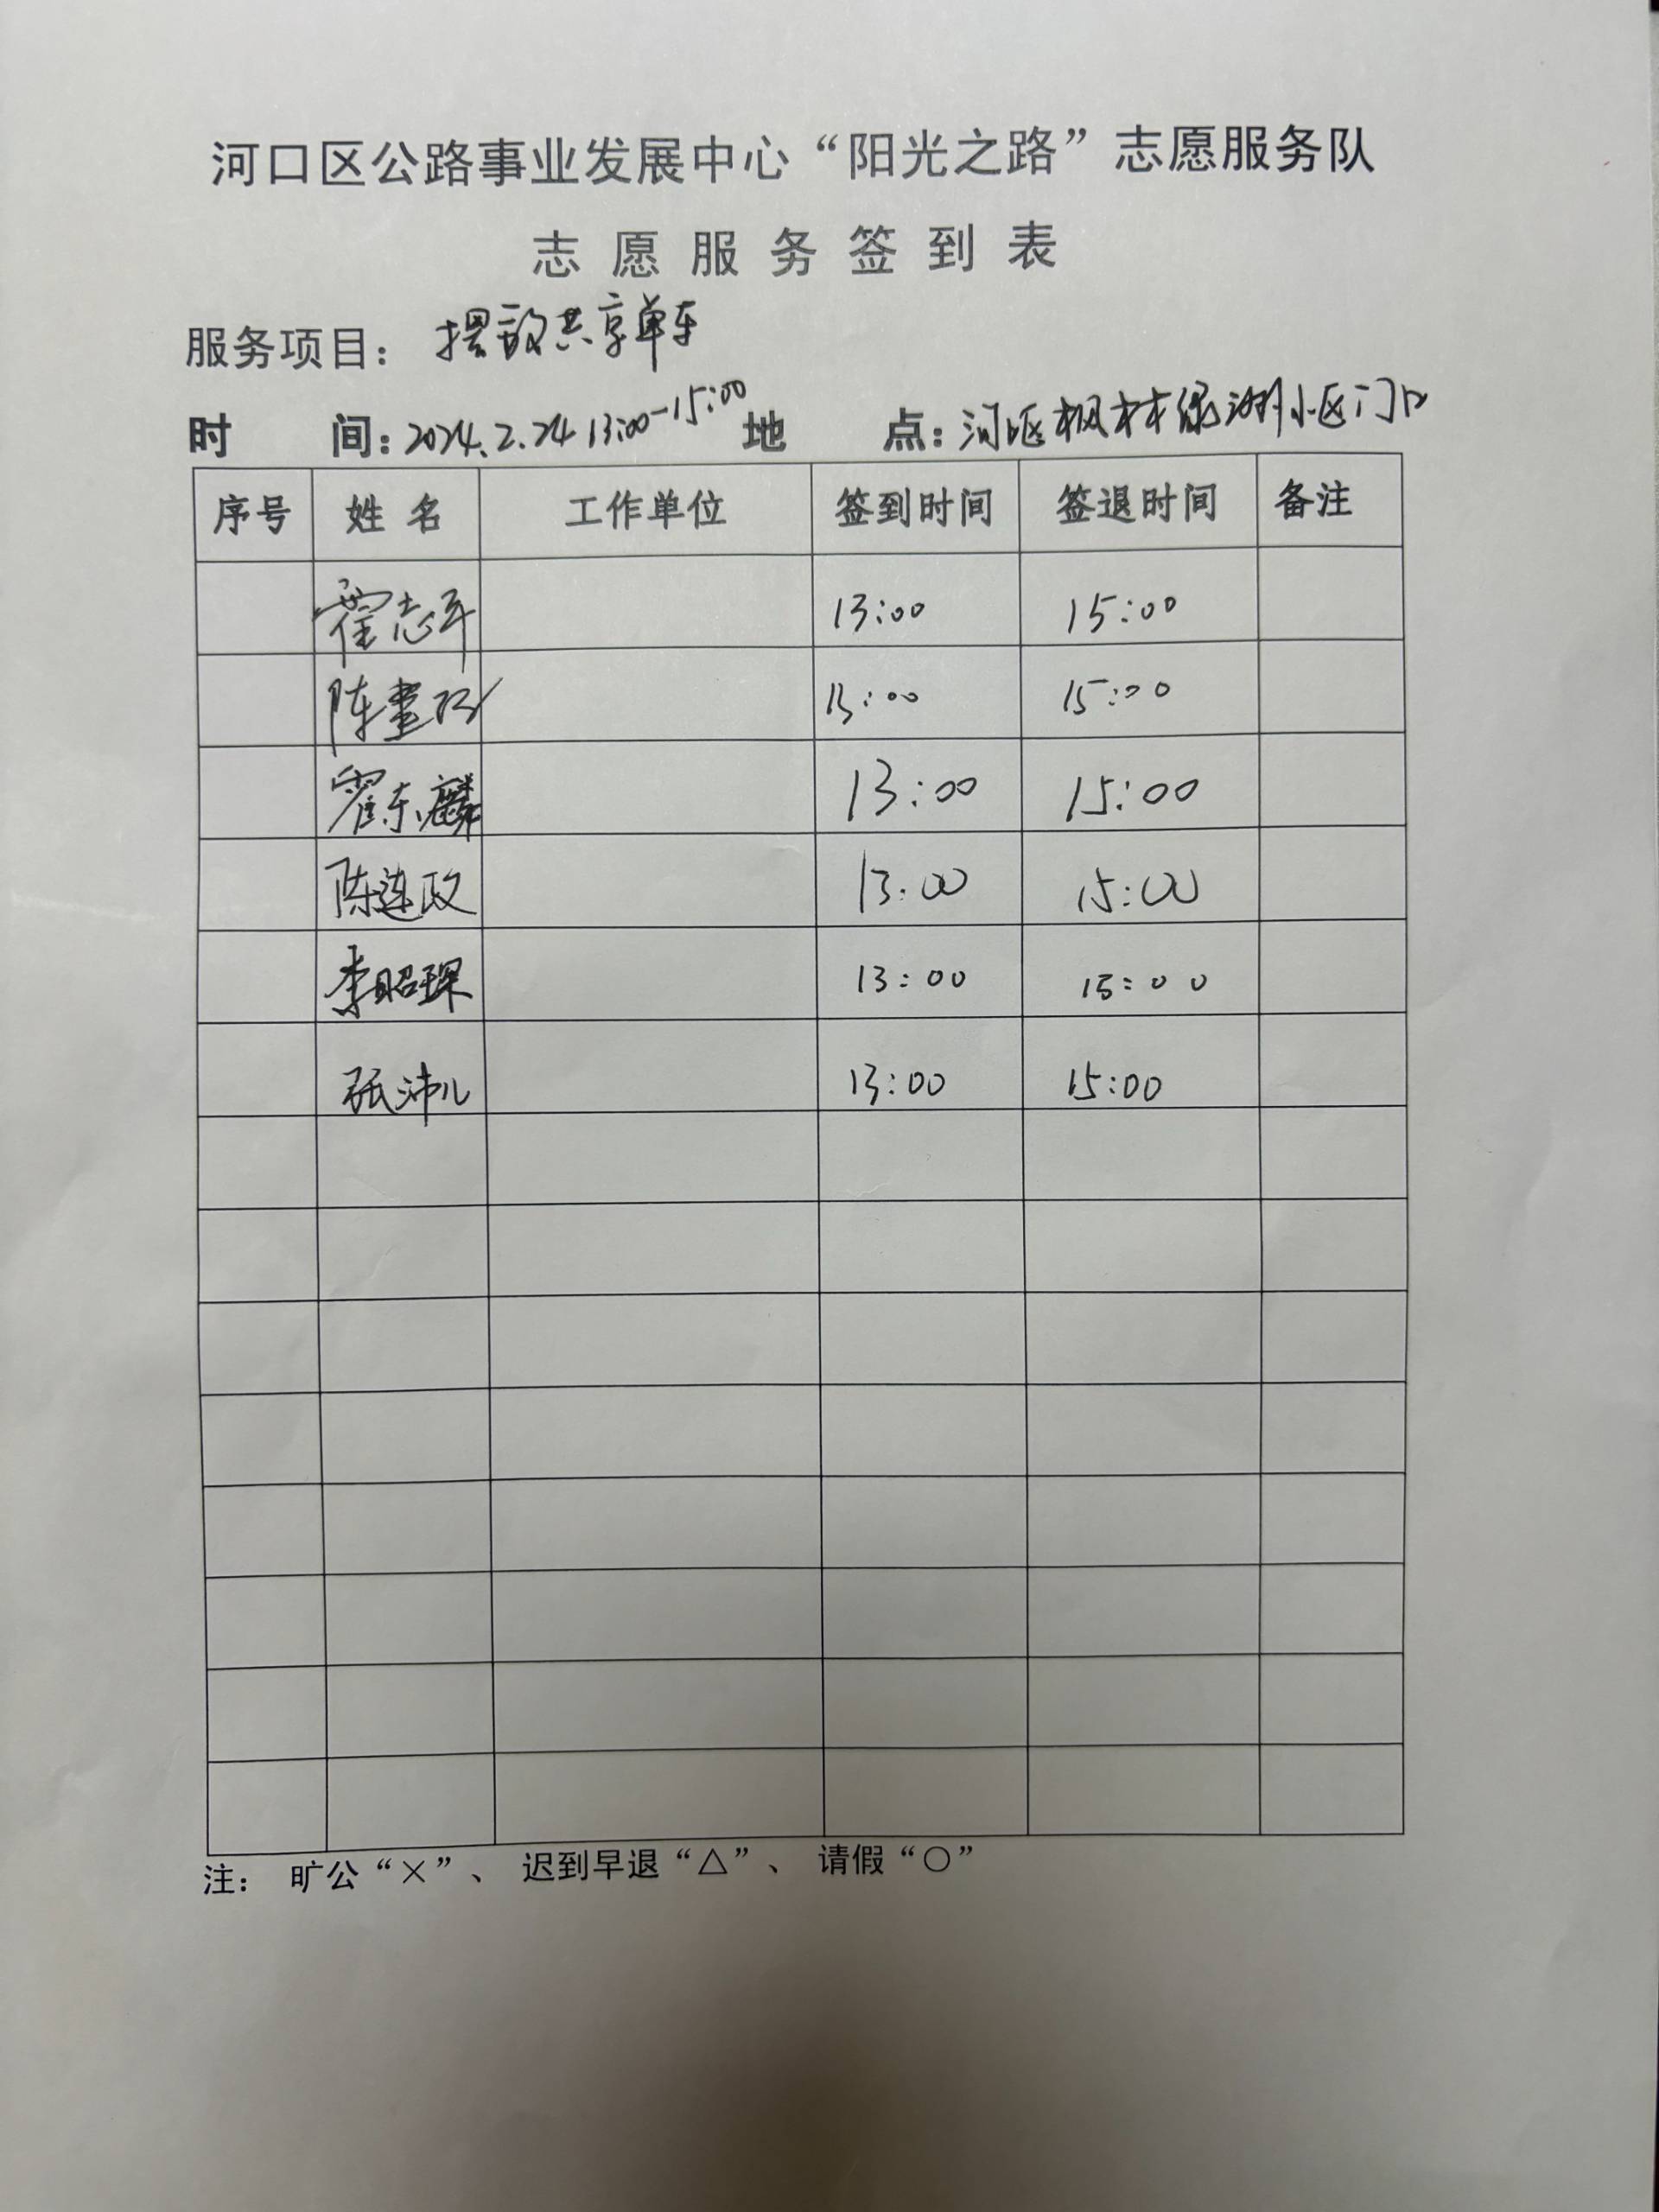 河口区公路事业发展中心“阳光之路”志愿服务队
志愿服务签到表
服务项目：摆放共享单车
时 间：2024.2.24 13:00-15:00 地 点：河口区枫林绿洲小区门口
序号 姓名 工作单位 签到时间 签退时间 备注
霍志平 13:00 15:00
陈 13:00 15:00
霍东麟 13:00 15:00
陈连政 13:00 15:00
李昭琛 13:00 15:00
张沛儿 13:00 15:00
注： 旷公“×”、 迟到早退“△”、 请假“○”